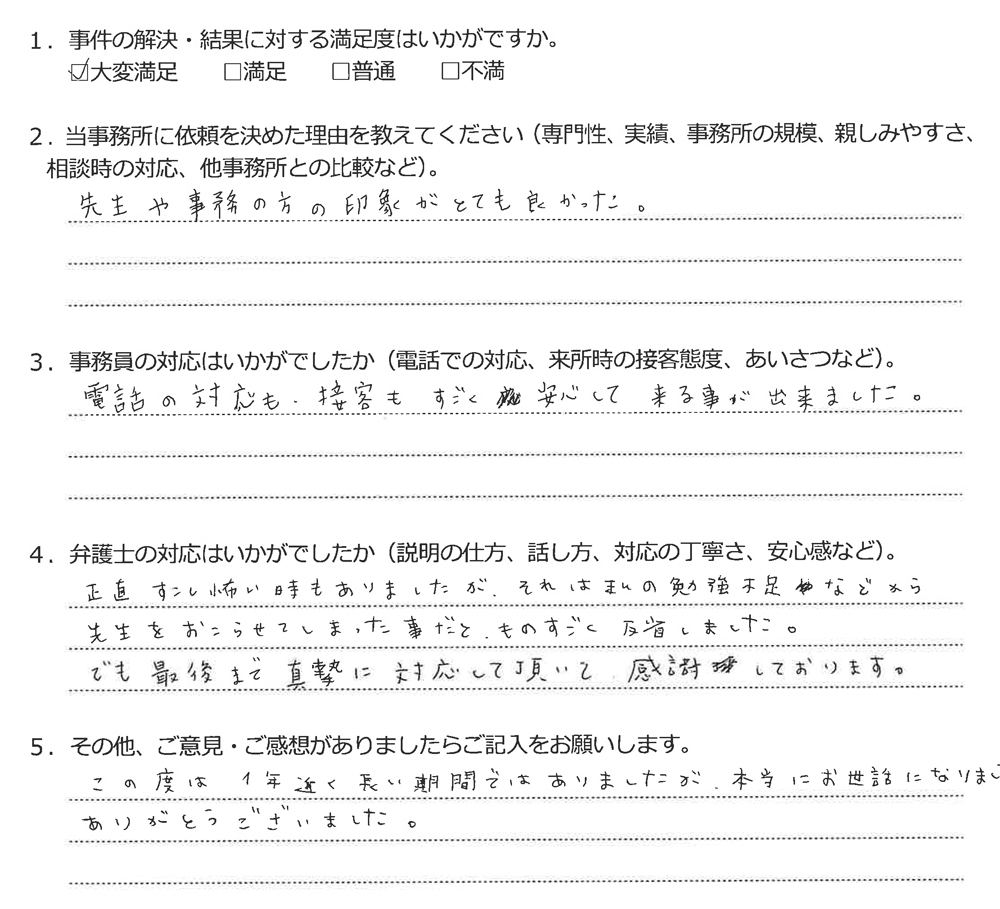 1．事件の解決・結果に対する満足度はいかがですか。
☑大変満足　□満足　□普通　□不満
2．当事務所に依頼を決めた理由を教えてください（専門性、実績、事務所の規模、親しみやすさ、
相談時の対応、他事務所との比較など）。
先生や事務の方の印象がとても良かった。
3．事務員の対応はいかがでしたか（電話での対応、来所時の接客態度、あいさつなど）。
電話の対応も、接客もすごく安心して来る事が出来ました。
4．弁護士の対応はいかがでしたか（説明の仕方、話し方、対応の丁寧さ、安心感など）。
正直すこし怖い時もありましたが、それは私の勉強不足などから
先生をおこらせてしまった事だと、ものすごく反省しました。
でも最後まで真摯に対応して頂いて、感謝しております。
5．その他、ご意見・ご感想がありましたらご記入をお願いします。
この度は1年近く長い期間ではありましたが、本当にお世話になりまし
ありがとうございました。